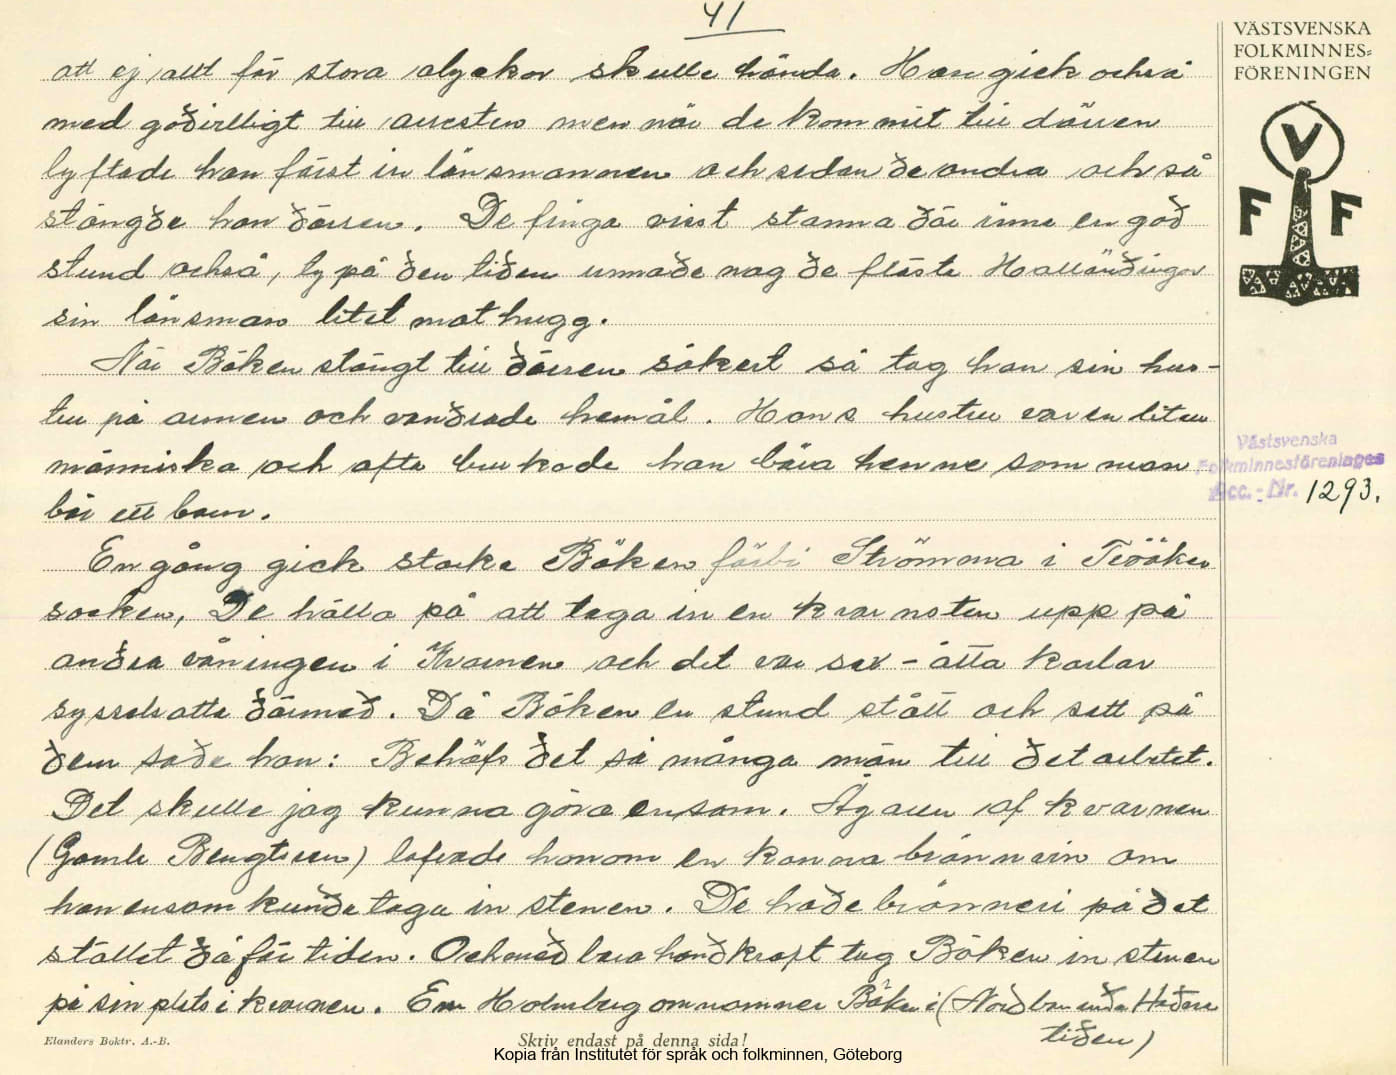 41
VÄSTSVENSKA
FOLKMINNES=
FÖRENINGEN
att ej allt för stora olyckor skulle hända. Han gick också
med godvilligt till arresten men när de kommit till dörren
lyftade han först in länsmannen och sedan de andra och så
stängde han dörren. De finga visst stanna där inne en god
stund också, ty på den tiden unnade nog de flesta Hallänningar
sin länsman litet mothugg.
När Böken stängt till dörren säkert så tog han sin hus-
tru på armen och vandrade hemåt. Hans hustru var en liten
människa och ofta brukade han bära henne som man
bär ett barn.
En gång gick starke Böken förbi Strömma i Tvååker
socken, De hålla på att taga in en kvarnsten upp på
andra våningen i Kvarnen och det var sex - åtta karlar
sysselsatta därmed. Då Böken en stund stått och sett på
dem sade han: Behöfs det så många män till det arbetet.
Det skulle jag kunna göra ensam. Ägaren af kvarnen
(Gamle Bengtsson) lofvade honom en kanna brännvin om
han ensam kunde taga in stenen. De hade bränneri på det
stället då för tiden. Och med bara handkraft tog Böken in stenen
på sin plats i kvarnen. Em Holmberg omnämner Böken i (Nordbon under Hedna
tiden)
VFF
Västsvenska
Folkminnesföreninges
Acc. - Nr. 1293.
Elanders Boktr. A.-B.
Skriv endast på denna sida!
Kopia från Institutet för språk och folkminnen, Göteborg